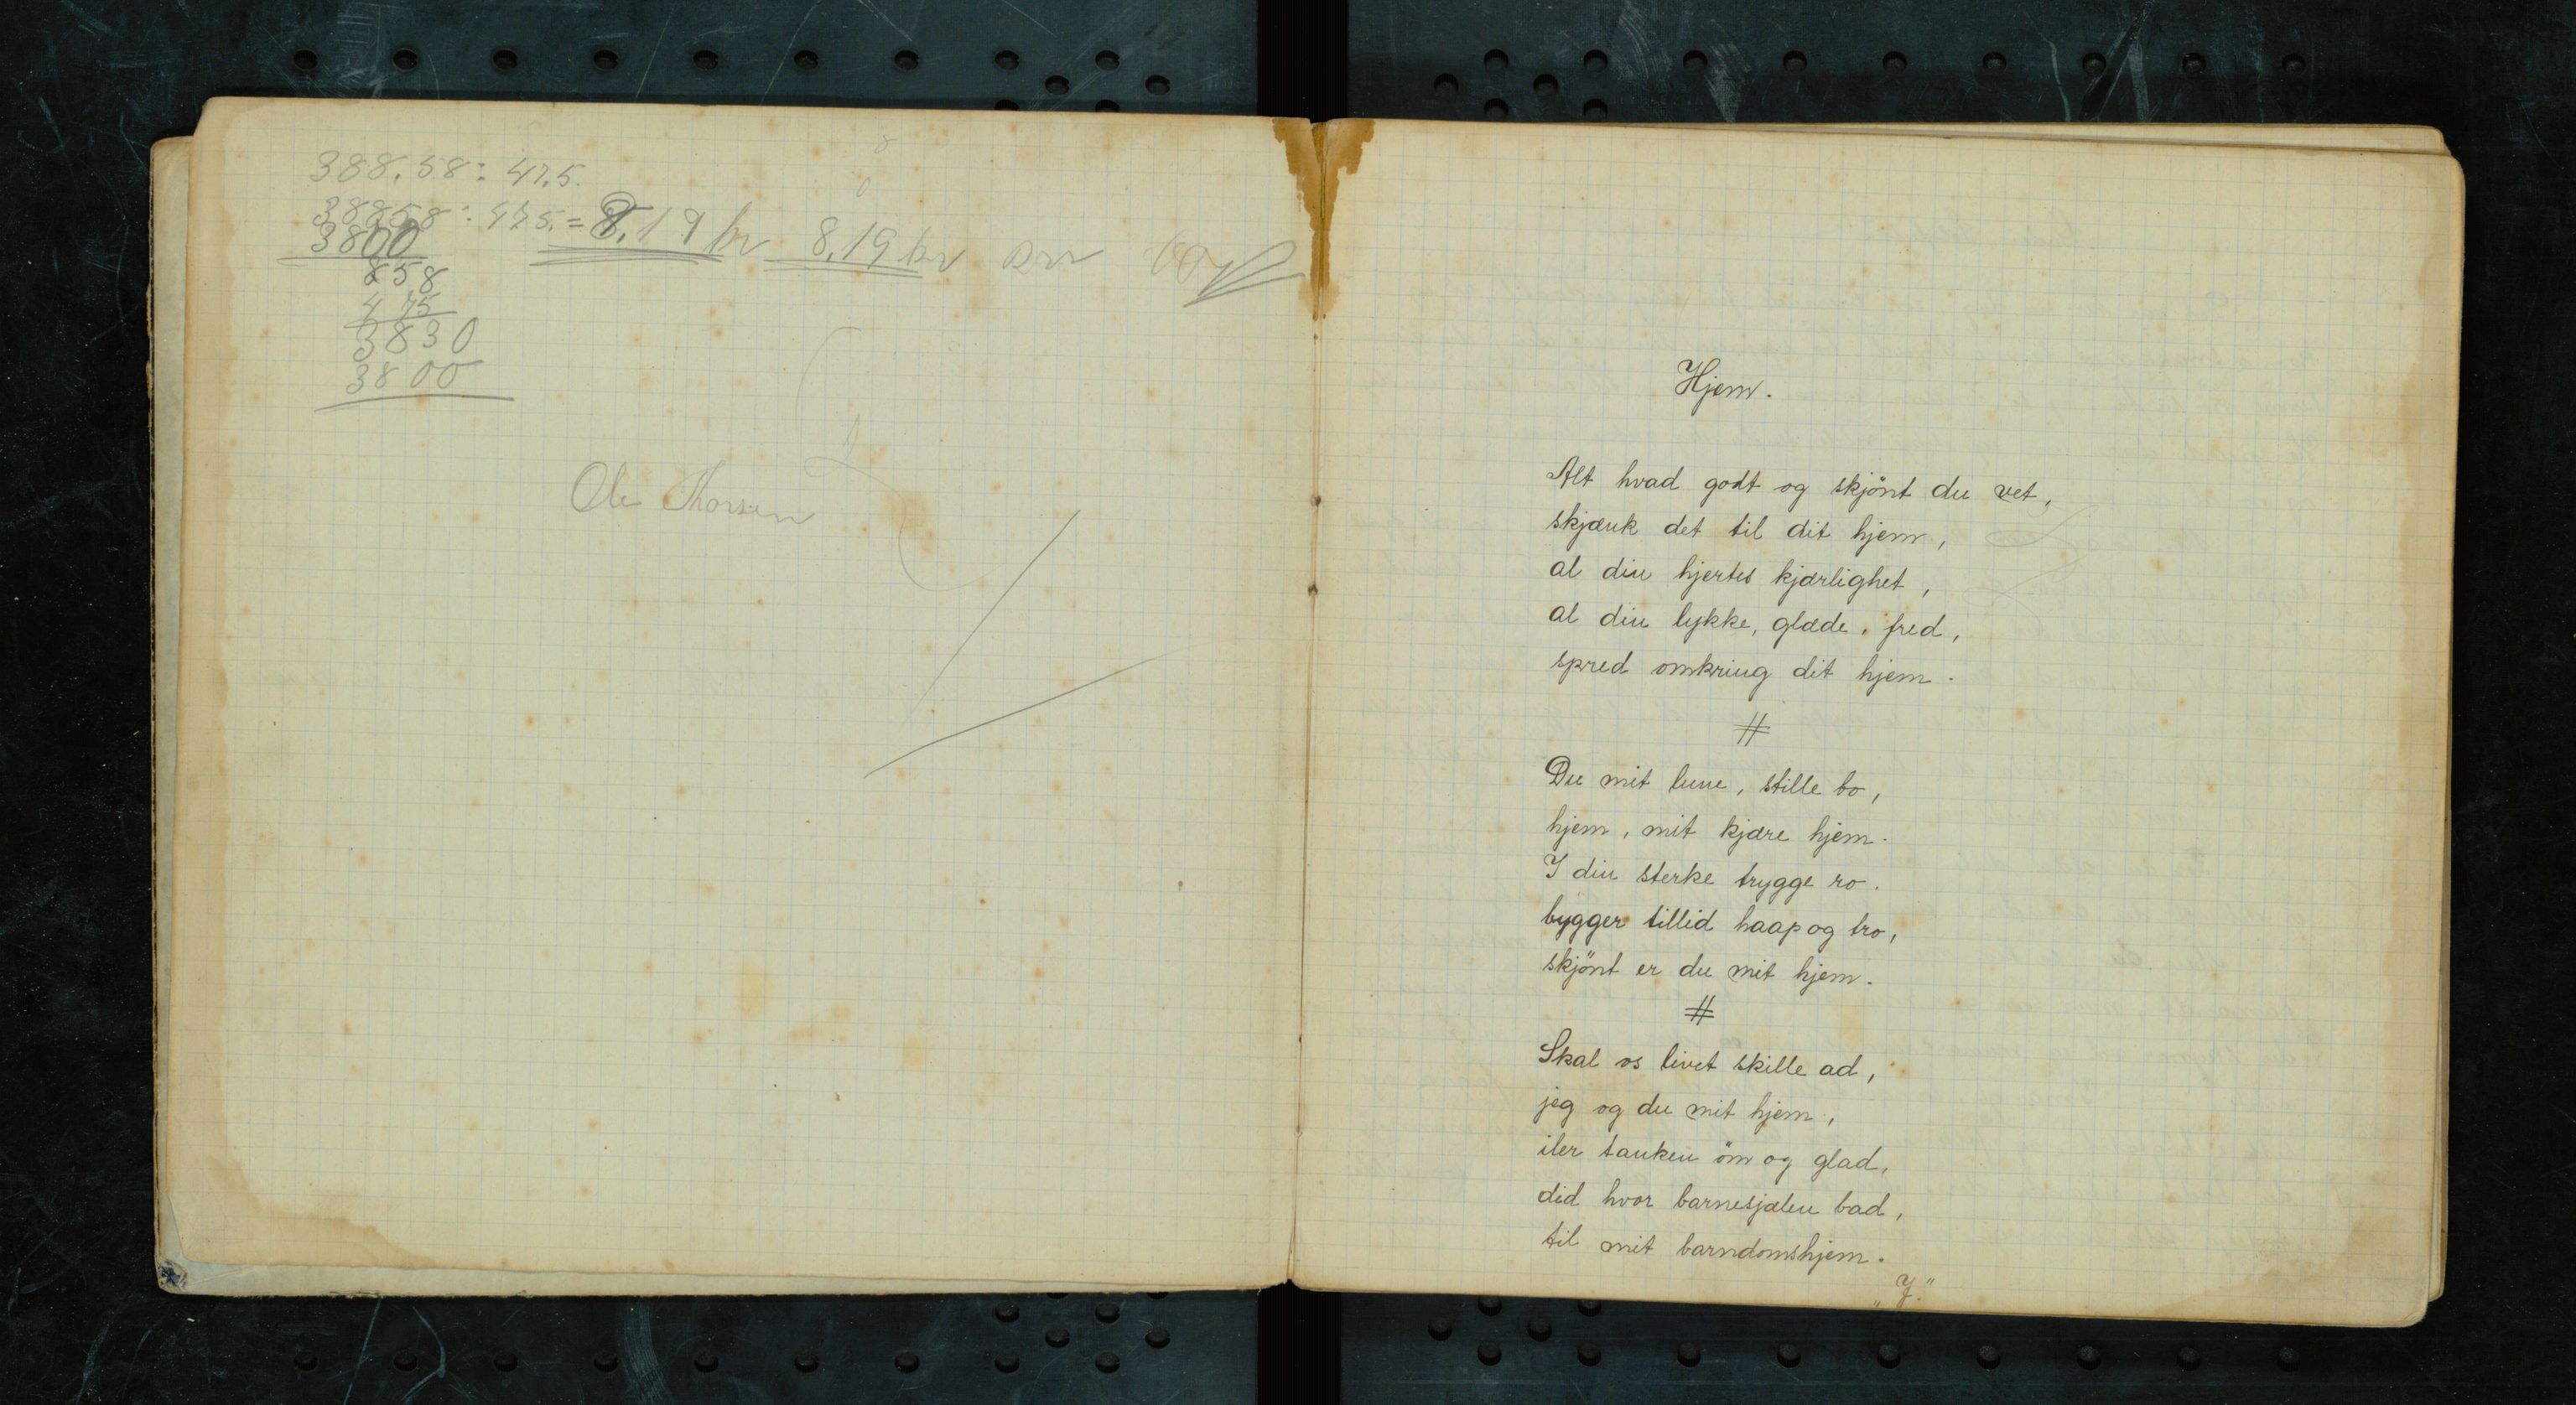 388,58 : 47,5.
38858 : 475, = 8,19 kr 8,19 kr
3800
858
475
3830
3800
Ole Thorsen
Hjem.
Alt hvad godt og skjönt du vet,
skjænk det til dit hjem,
al din hjertes kjærlighet,
al din lykke, glæde, fred,
spred omkring dit hjem.
#
Du mit lune, stille bo,
hjem, mit kjære hjem.
I din sterke trygge ro.
bygger tillid haap og tro,
skjönt er du mit hjem.
#
Skal os livet skille ad,
jeg og du mit hjem,
iler tanken öm og glad,
did hvor barnesjælen bad,
til mit barndomshjem.